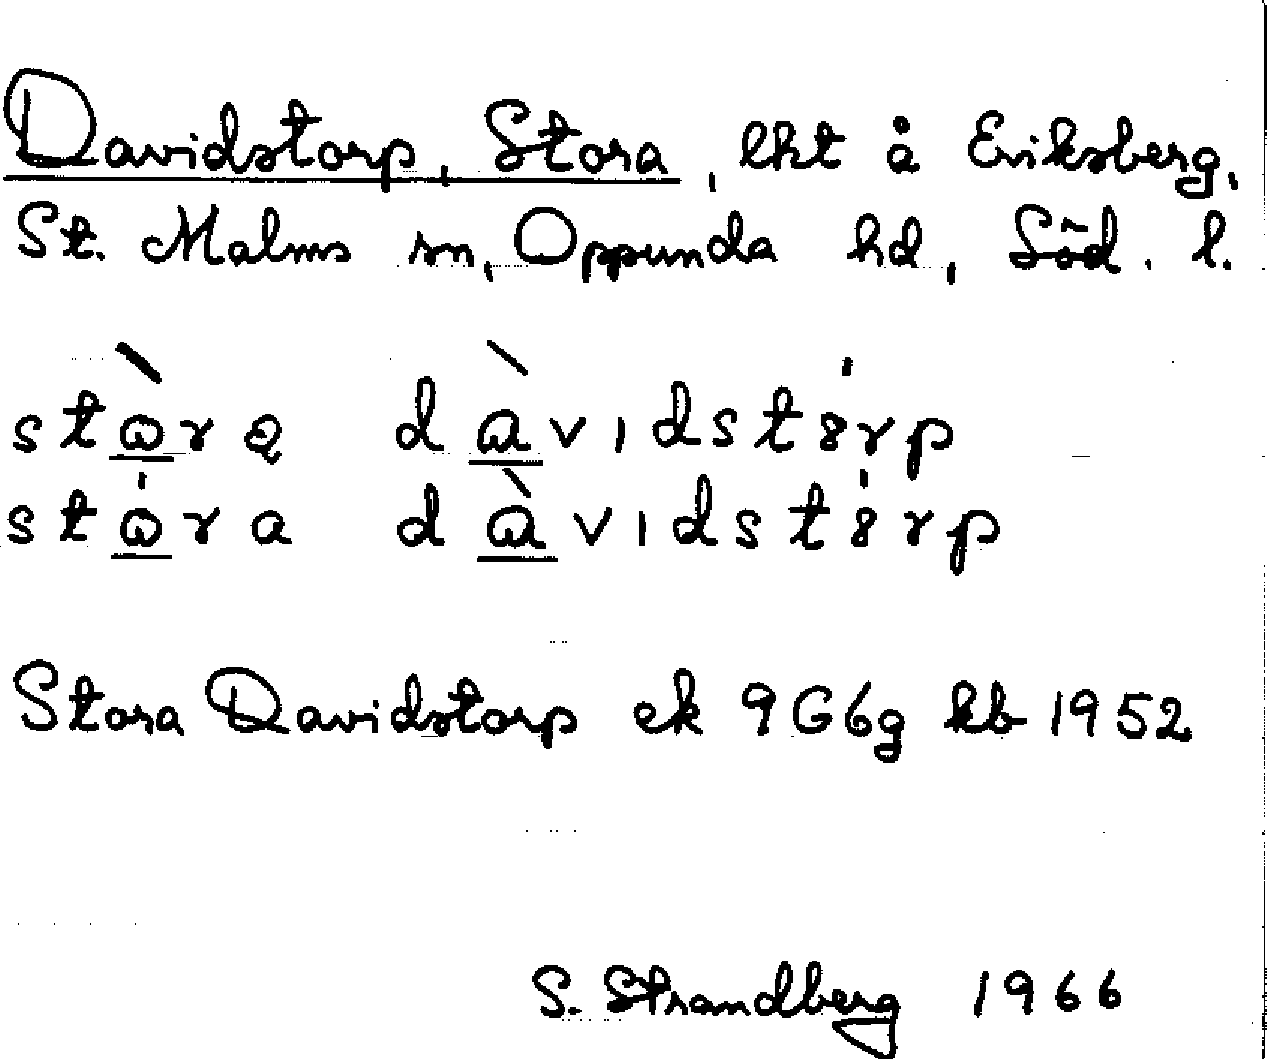 Davidstorp, Stora, lht å Eriksberg,
St. Malms sn, Oppunda hd, Söd. l.
stɷ̀rą dàvıdstȣ́rp
stɷ́ra dàvıdstȣ́rp
Stora Davidstorp ek 9G6g kb 1952
S. Strandberg 1966